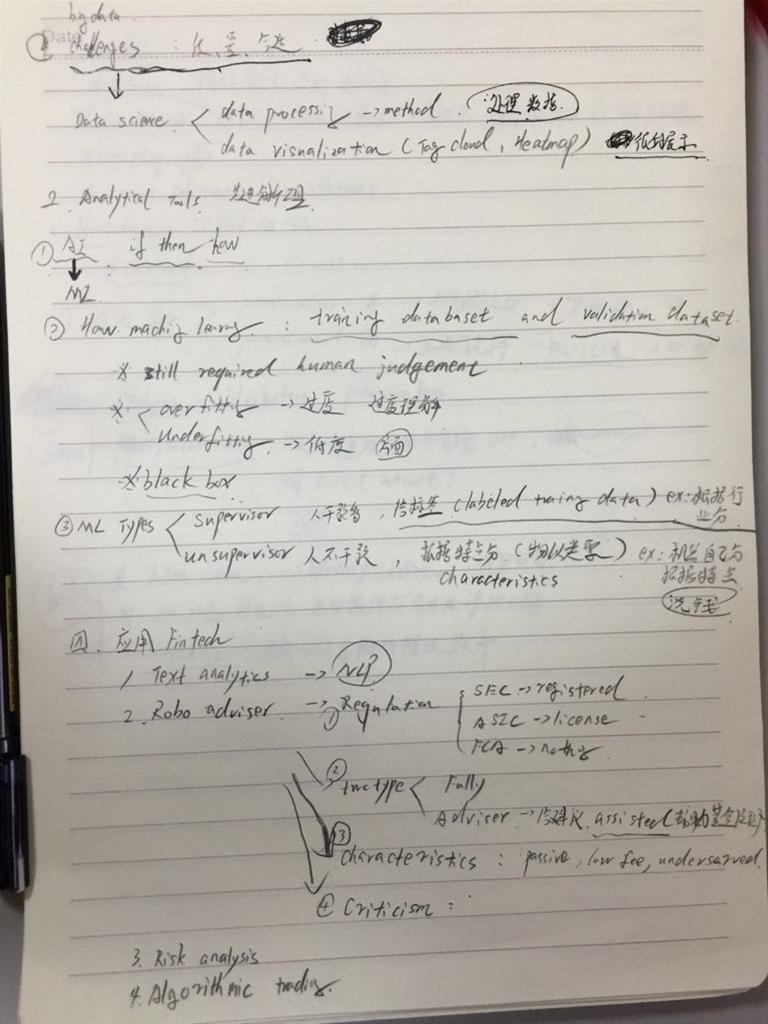 big data
challenges : 质、量、合适
Data science < data processing → method. 处理数据.
data visualization (Tag cloud, Heatmap) 展示
2. Analytical Tools 先进分析工具
① AI if then how
↓
ML
② How machig learng : training databaset and validation dataset.
※ still required human judgement
※ < overfitting → 过度 过度理解
underfitting. → 低度
※ black box
③ ML Types < supervisor 人干预多, 给标签 (labeled traing data) ex: 根据行业分
unsupervisor 人不干预, 根据特点分 (物以类聚) ex: 机器自己分
characteristics 根据特点
洗钱
四. 应用 Fintech
1. Text analytics → NLP
2. Robo adviser. → ① Regulation { SEC → registered.
ASIC → license
FCA → nothing
② two type < Fully
Adviser → 给建议. assisted 辅助
③ characteristics : passive, low fee, underserved.
④ Criticism :
3. Risk analysis
4. Algorithmic trading.